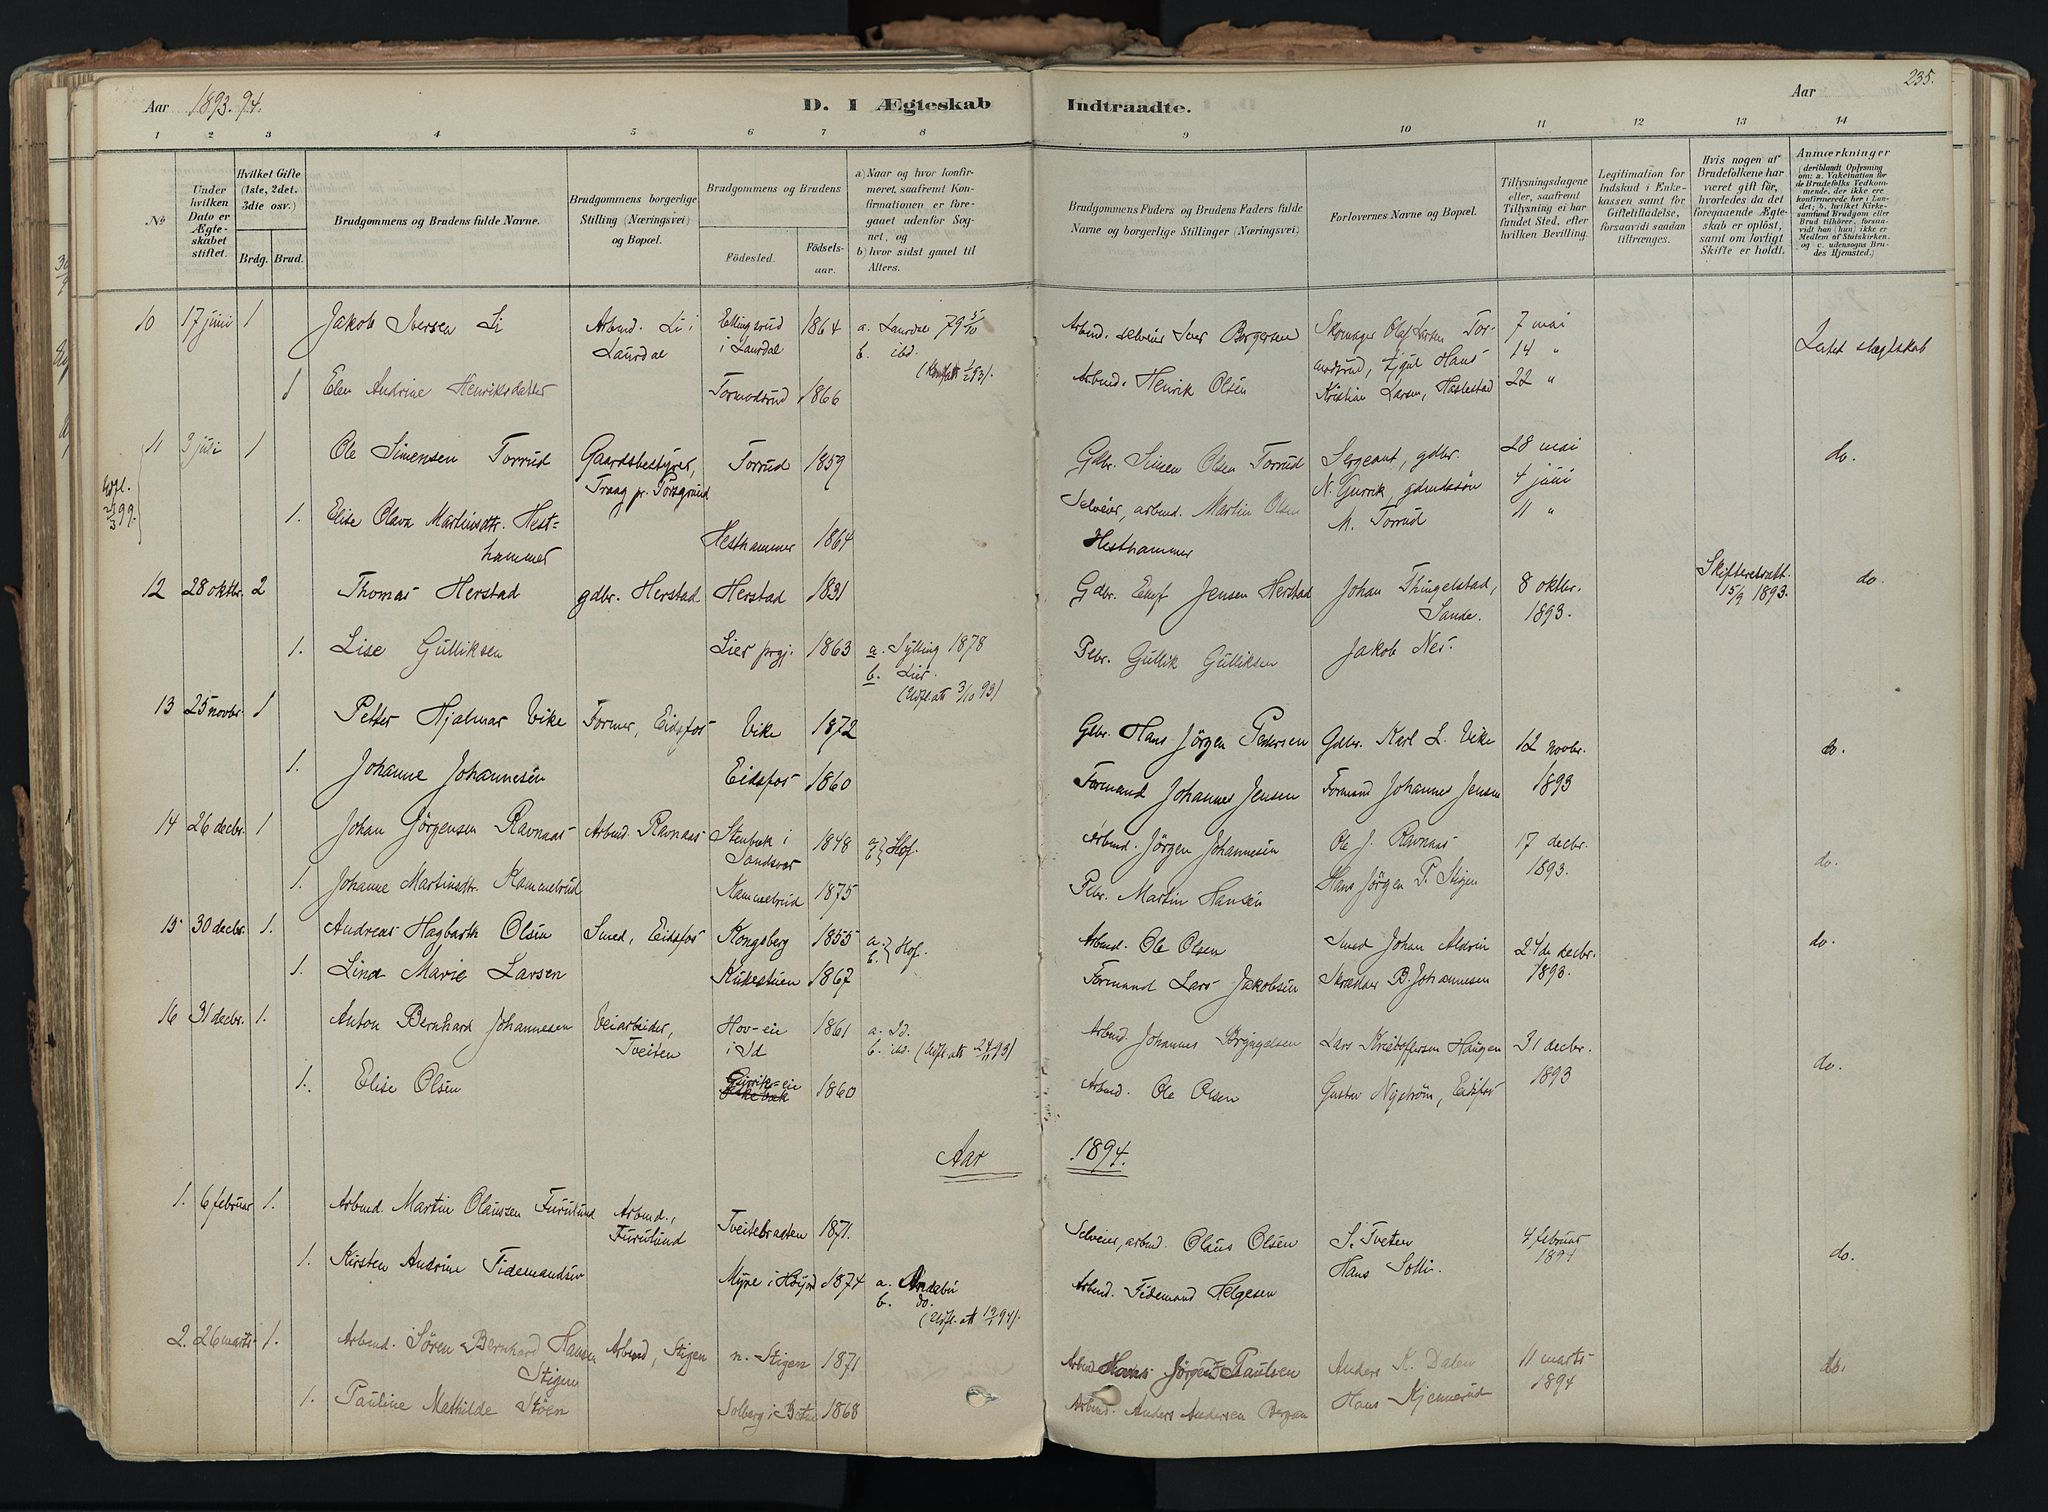 Aar 1893. 94.
D. I Ægteskab Indtraadte.
Aar
235.
1 2 3 4 5 6 7 8 9 10 11 12 13 14
No
Under hvilken Dato er Ægteskabet stiftet.
Hvilket Gifte (1ste, 2det. 3die osv.)
Brdg. Brud.
Brudgommens og Brudens fulde Navne.
Brudgommens borgerlige Stilling (Næringsvei) og Bopæl.
Brudgommens og Brudens
Födested.
Födselsaar.
a) Naar og hvor konfirmeret, saafremt Konfirmationen er foregaaet udenfor Sognet, og
b) hvor sidst gaaet til Alters.
Brudgommens Faders og Brudens Faders fulde Navne og borgerlige Stillinger (Næringsvei)
Forlovernes Navne og Bopæl.
Tillysningsdagene eller, saafremt Tillysning ei har fundet Sted, efter hvilken Bevilling.
Legitimation for Indskud i Enkekassen samt for Giftetilladelse, forsaavidt saadan tiltrænges.
Hvis nogen af Brudefolkene har været gift før, hvorledes da det foregaaende Ægteskab er oplöst, samt om lovligt Skifte er holdt.
Anmærkninger
(deriblandt Oplysning om: a. Vakcination for de Brudefolks Vedkommende, der ikke ere konfirmerede her i Landet, b. hvilket Kirkesamfund Brudgom eller Brud tilhörer, forsaavidt han (hun) ikke er Medlem af Statskirken og c. udensogns Brudes Hjemsted.)
10 17 juni 1 Jakob Iversen Li Arbmd. Li i Laurdal i Laurdal 1864 a. Laurdal 79 5/10 b. ibd.
Arbmd. selveier Iver Borgersen Skomager Olaf Larsen Tormodsrud, Hans Kristian Larsen, Heslestad 7 mai 14 " 22 "
1 Elen Andrine Henriksdatter Tormodsrud 1866 Arbmd. Henrik Olsen
11 3 juli 1 Ole Simensen Torrud Gaardsbestyrer, Traag pr. Porsgrund Torrud 1859
Gdbr. Simen Olsen Torrud Sergeant, gdbr. N. Gurrik, gdmdssøn M. Torrud 28 mai 4 juni 11 " do.
1. Elise Olava Martinsdtr. Hesthammer Hesthammer 1864 Selveier, arbmd. Martin Olsen Hesthammer
12 28 oktbr. 2 Thomas Herstad gdbr. Herstad Herstad 1831
Gdbr. Jensen Herstad Johan Thingelstad, Sande. 8 oktbr. 1893. Skifteretsatt. 15/9 1893. do.
1. Lise Gulliksen Lier prgj. 1863 a. Sylling 1878 b. Lier. (Udfl.att. 3/10 93) Pebr. Gullik Gulliksen Jakob Nes.
13 25 novbr. 1 Petter Hjalmar Vike Former, Eidsfos Vike 1872
Gdbr. Hans Jörgen Pedersen Gdbr. Karl L. Vike 12 novbr. 1893 do.
1. Johanne Johannesen Eidsfos 1860 Formand Johannes Jensen Formand Johannes Jensen
14 26 decbr. 1 Johan Jörgensen Ravnaas Arbmd. Ravnaas Stenbæk i Sandsvær 1848 a. b. } Hof.
Arbmd. Jörgen Johannesen Ole J. Ravnaas 17 decbr. 1893. do.
1. Johanne Martinsdtr. Kammebrud Kammebrud 1875 Pebr. Martin Hansen Hans Jörgen P. Stigen
15 30 decbr. 1. Andreas Hagbarth Olsen Smed, Eidsfos Kongsberg 1855 a. b. } Hof.
Arbmd. Ole Olsen Smed Johan Aldrin 24de decbr. 1893. do.
1. Lina Marie Larsen 1867 Formand Lars Jakobsen Skrædder B. Johannesen
16 31 decbr. 1. Anton Bernhard Johannesen Veiarbeider, Tveiten Hov-eie i Id 1861 a. Id. b. ibd. (Udfl.att. 24/11 93)
Arbmd. Johannes Bryngelsen Lars Kristoffersen Haugen 31 decbr. 1893 do.
1. Elise Olsen Gurrik-eie 1860 Arbmd. Ole Olsen Gustav Nyström, Eidsfos
Aar 1894.
1. 6 februar 1. Arbmd. Martin Olaussen Furulund Arbmd., Furulund Tveitebraaten 1871.
Selveier, arbmd. Olaus Olsen S. Tveten 4 februar 1894 do.
1. Kirsten Andrine Tidemandsen Myre i Höijord 1874 a. Andebu b. do. (Udfl.att. 19/1 94). Arbmd. Tidemand Helgesen Hans Solli.
2. 26 marts 1. Arbmd. Sören Bernhard Hansen Stigen Arbmd, Stigen n. Stigen 1871
Arbmd Hans Jörgen Paulsen Anders K. Dalen 11 marts 1894 do.
1. Pauline Mathilde Støen Solberg i Botne 1868 Arbmd. Anders Andersen Bergan Hans Kjennerud